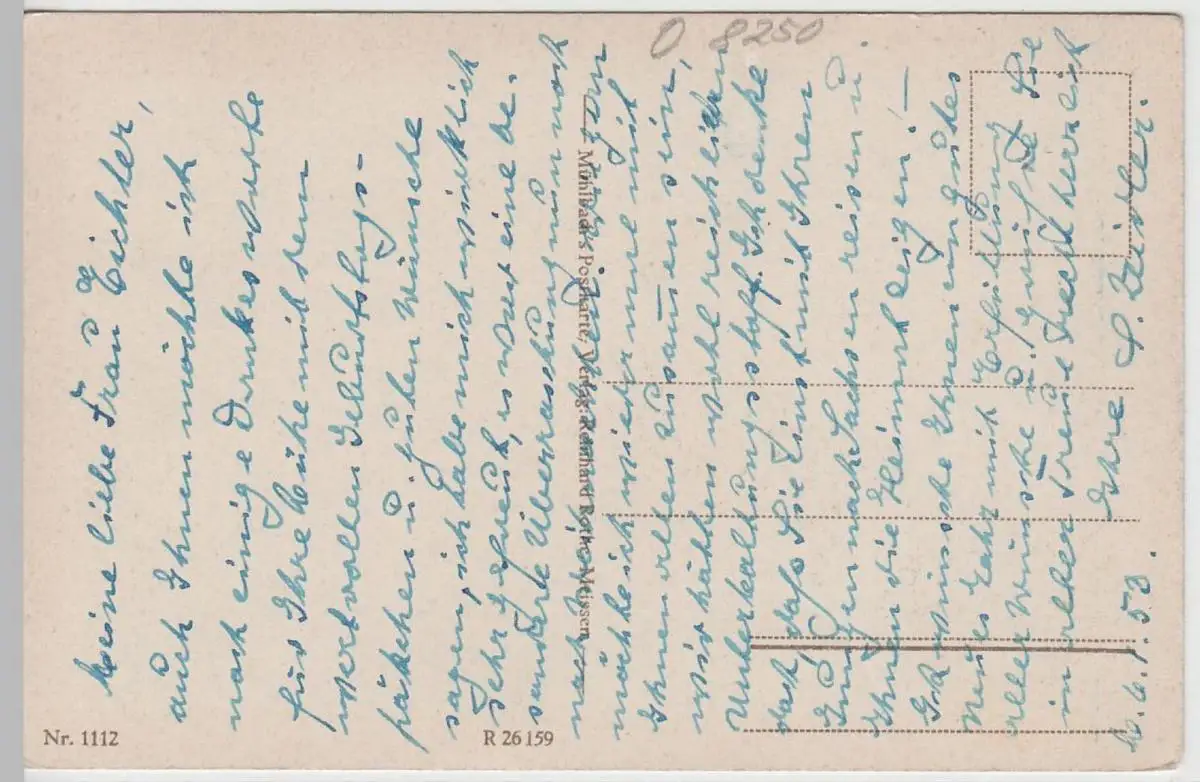 Meine liebe Frau Eichler,
auch Ihnen möchte ich
noch einige Dankesworte
für Ihre Güte mit dem
wertvollen Geburtstags-
päkchen u. guten Wünsche
sagen, ich habe mich wirklich
sehr gefreut, es war eine be-
sondere Überraschung nun noch
nach
möchte ich wieder mal mit
Ihnen allen zusammen sein,
wir hätten wohl reichlichen
Unterhaltungsstoff. Ich denke
doch, daß Sie einst mit Ihren
Jungen nach Sachsen reisen u.
Ihnen die Heimat zeigen! —
Ich wünsche Ihnen ein gutes
neues Jahr mit Erfüllung
aller Wünsche u. Sie
in alter Freundschaft herzlich
Ihre
6.1.53.
O 8250
Mühlbach's Postkarte, Verlag: Reinhard Rothe, Meissen
Nr. 1112
R 26159